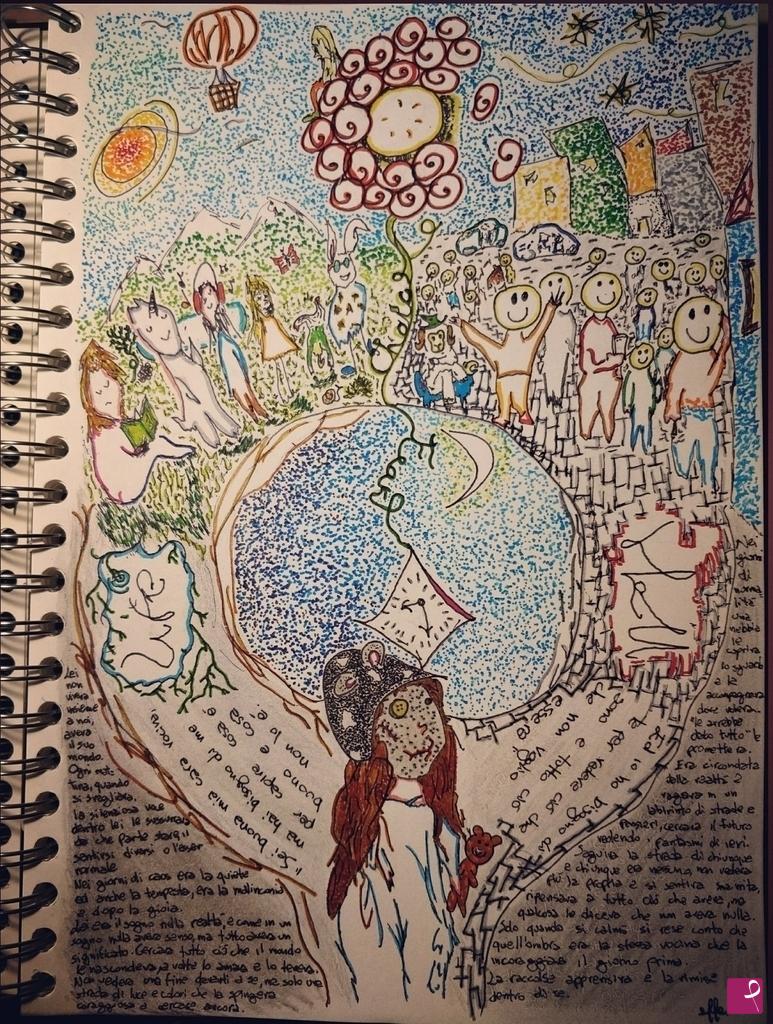 Lei
non
viveva
insieme
a noi,
aveva
il suo
mondo.
Ogni mat-
tina, quando
si svegliava,
la silenziosa voce
dentro lei le sussurrava
da che parte stare, il
sentirsi diversi o l'esser
normale.
Nei giorni di caos era la quiete
ed anche la tempesta, era la malinconia
e dopo la gioia.
Lei era il sogno nella realtà, e come in un
sogno nulla aveva senso, ma tutto aveva un
significato. Cercava tutto ciò che il mondo
le nascondeva, a volte lo amava e lo temeva.
Non vedeva una fine davanti a sé, ma solo una
strada di luce e colori che la spingeva
coraggiosa a cercare ancora.
"Sei buona mia cara vocina,
ma hai bisogno di me
per capire cosa è
buono e cosa
non lo è.
Ed io ho bisogno di
te per vedere ciò che
sono e tutto ciò
che non voglio
essere."
Nei
giorni
di
norma-
lità
una
nebbia
le
copriva
lo sguardo
e la
accompagnava
dove voleva.
"le avrebbe
dato tutto" le
prometteva.
Era circondata
dalla realtà e
vagava in un
labirinto di strade e
pensieri, cercava il futuro
vedendo i fantasmi di ieri.
Seguiva la strada di chiunque
e chiunque era nessuno, non vedeva
più la propria e si sentiva smarrita,
ripensava a tutto ciò che aveva, ma
qualcosa le diceva che non aveva nulla.
Solo quando si calmò si rese conto che
quell'ombra era la stessa vocina che la
incoraggiava il giorno prima.
La raccolse apprensiva e la rimise
dentro di sé.
effe